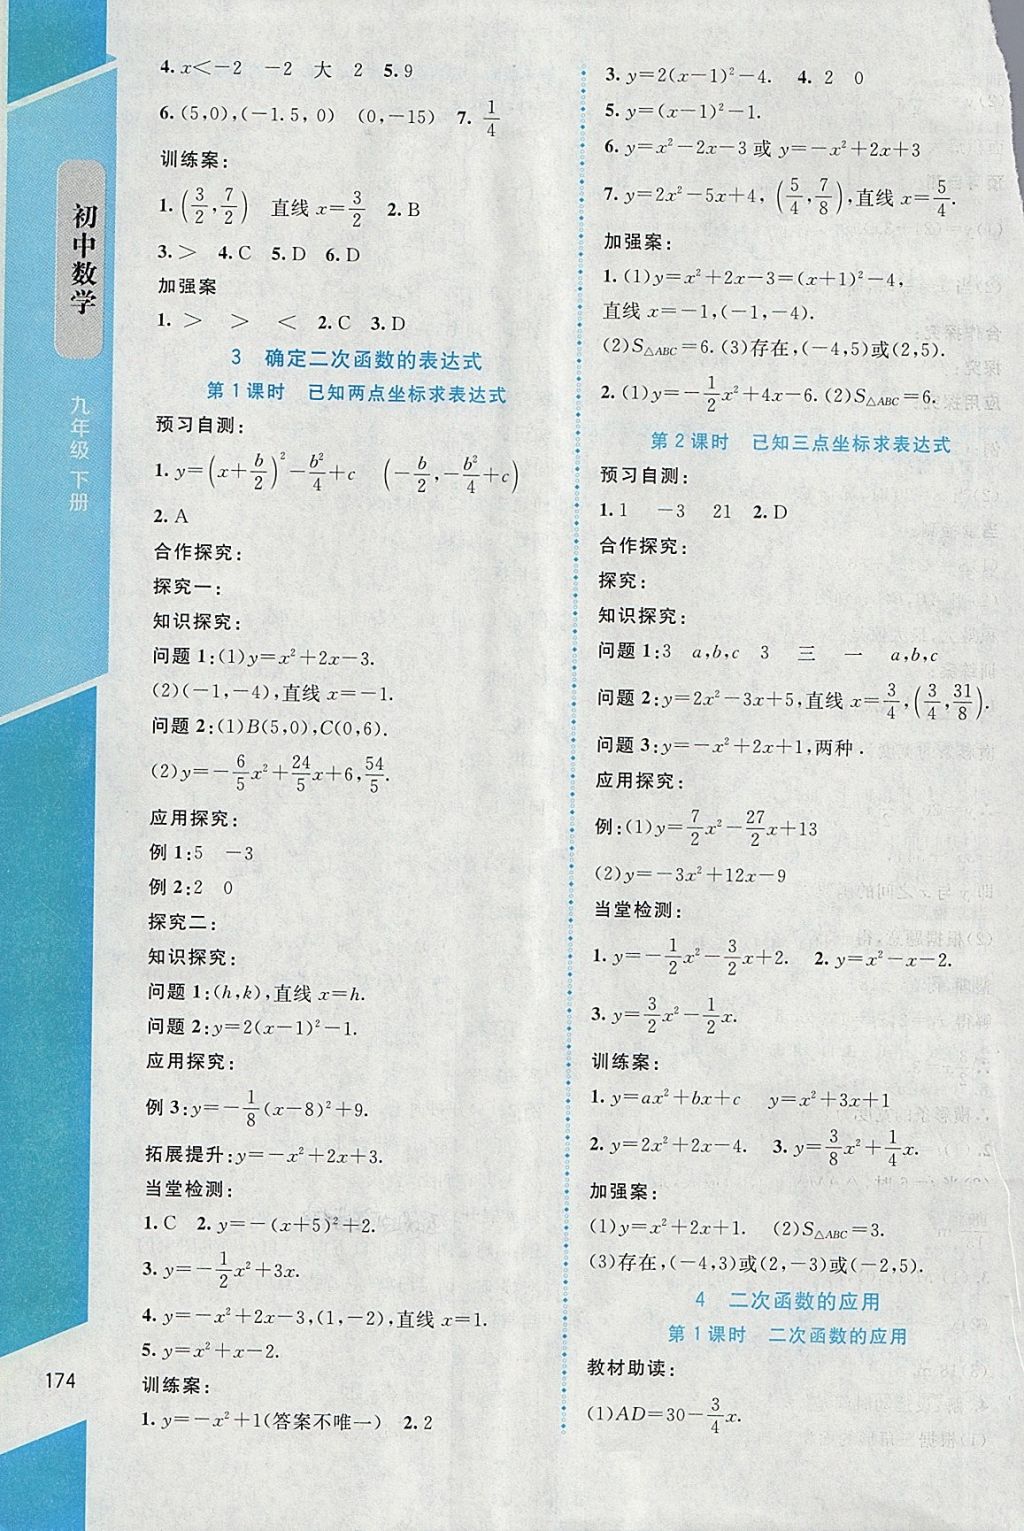 初中数学
九年级 下册
174
4.x<-2 -2 大 2 5.9
6.(5,0),(-1.5,0) (0,-15) 7.1/4
训练案:
1.(3/2,7/2) 直线x=3/2 2.B
3.> 4.C 5.D 6.D
加强案
1.> > < 2.C 3.D
3 确定二次函数的表达式
第1课时 已知两点坐标求表达式
预习自测:
1.y=(x+b/2)²-b²/4+c (-b/2,-b²/4+c)
2.A
合作探究:
探究一:
知识探究:
问题1:(1)y=x²+2x-3.
(2)(-1,-4),直线x=-1.
问题2:(1)B(5,0),C(0,6).
(2)y=-6/5x²+24/5x+6,54/5.
应用探究:
例1:5 -3
例2:2 0
探究二:
知识探究:
问题1:(h,k),直线x=h.
问题2:y=2(x-1)²-1.
应用探究:
例3:y=-1/8(x-8)²+9.
拓展提升:y=-x²+2x+3.
当堂检测:
1.C 2.y=-(x+5)²+2.
3.y=-1/2x²+3x.
4.y=-x²+2x-3,(1,-2),直线x=1.
5.y=x²+x-2.
训练案:
1.y=-x²+1(答案不唯一) 2.2
3.y=2(x-1)²-4. 4.2 0
5.y=(x-1)²-1.
6.y=x²-2x-3或y=-x²+2x+3
7.y=2x²-5x+4,(5/4,7/8),直线x=5/4.
加强案:
1.(1)y=x²+2x-3=(x+1)²-4,
直线x=-1,(-1,-4).
(2)S△ABC=6.(3)存在,(-4,5)或(2,5).
2.(1)y=-1/2x²+4x-6.(2)S△ABC=6.
第2课时 已知三点坐标求表达式
预习自测:
1.1 -3 21 2.D
合作探究:
探究:
知识探究:
问题1:3 a,b,c 3 三 一 a,b,c
问题2:y=2x²-3x+5,直线x=3/4,(3/4,31/8).
问题3:y=-x²+2x+1,两种.
应用探究:
例:(1)y=7/2x²-27/2x+13
(2)y=-3x²+12x-9
当堂检测:
1.y=-1/2x²-3/2x+2. 2.y=x²-x-2.
3.y=3/2x²-1/2x.
训练案:
1.y=ax²+bx+c y=x²+3x+1
2.y=2x²+2x-4. 3.y=3/8x²+1/4x.
加强案:
(1)y=x²+2x+1. (2)S△ABC=3.
(3)存在,(-4,3)或(2,-3)或(-2,5).
4 二次函数的应用
第1课时 二次函数的应用
教材助读:
(1)AD=30-3/4x.